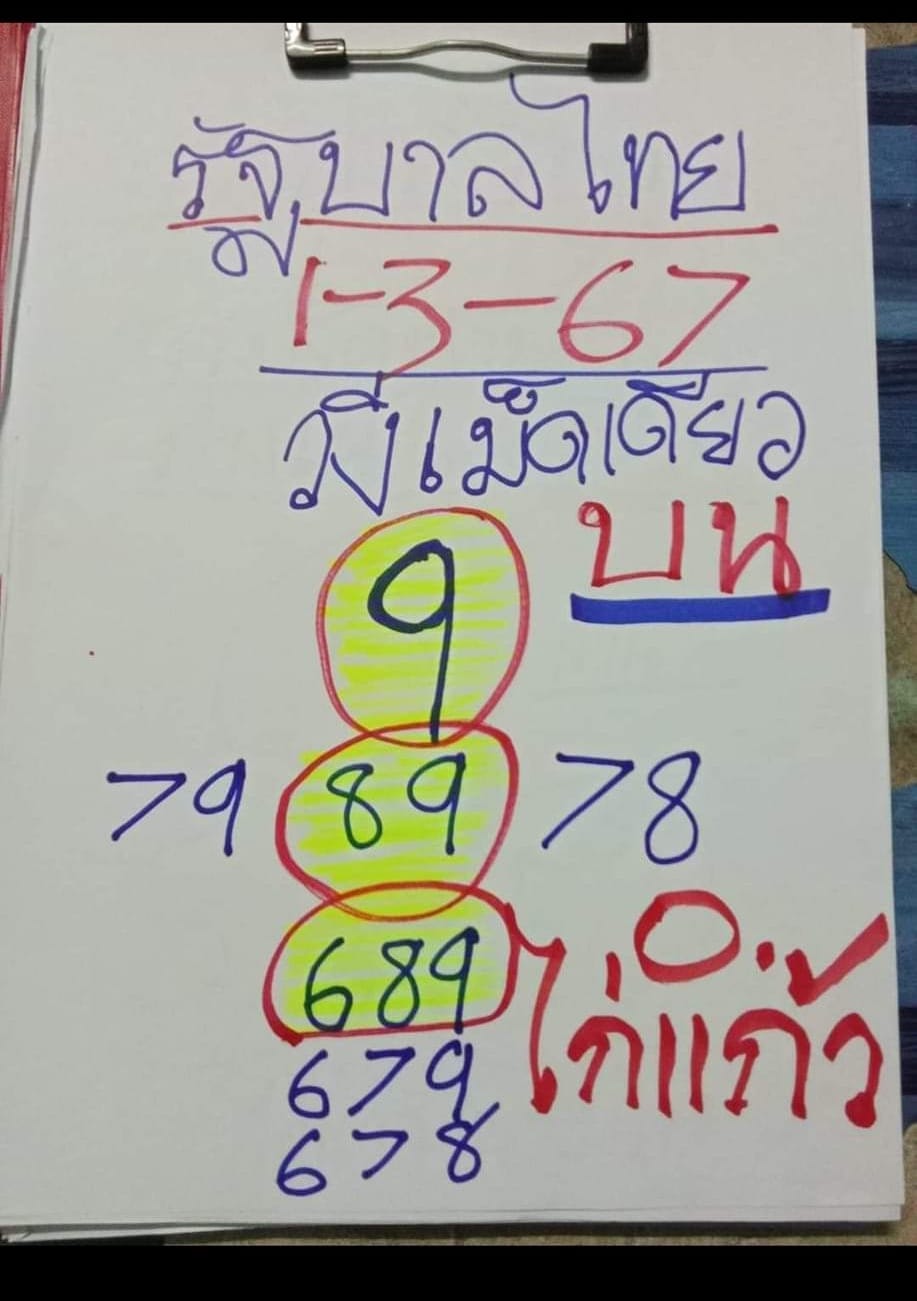 รัฐบาลไทย
1-3-67
วิ่งเม็ดเดียว
บน
9
79 89 78
689
ไก่แก้ว
679
678